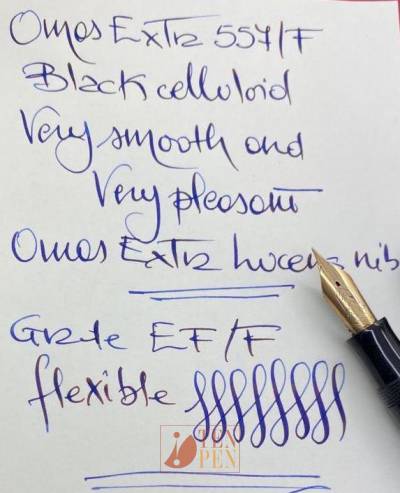 Omas Extra 557/F
Black celluloid
Very smooth and
Very pleasant
Omas Extra Lucens nib
Grade EF/F
flexible
TEN
PEN